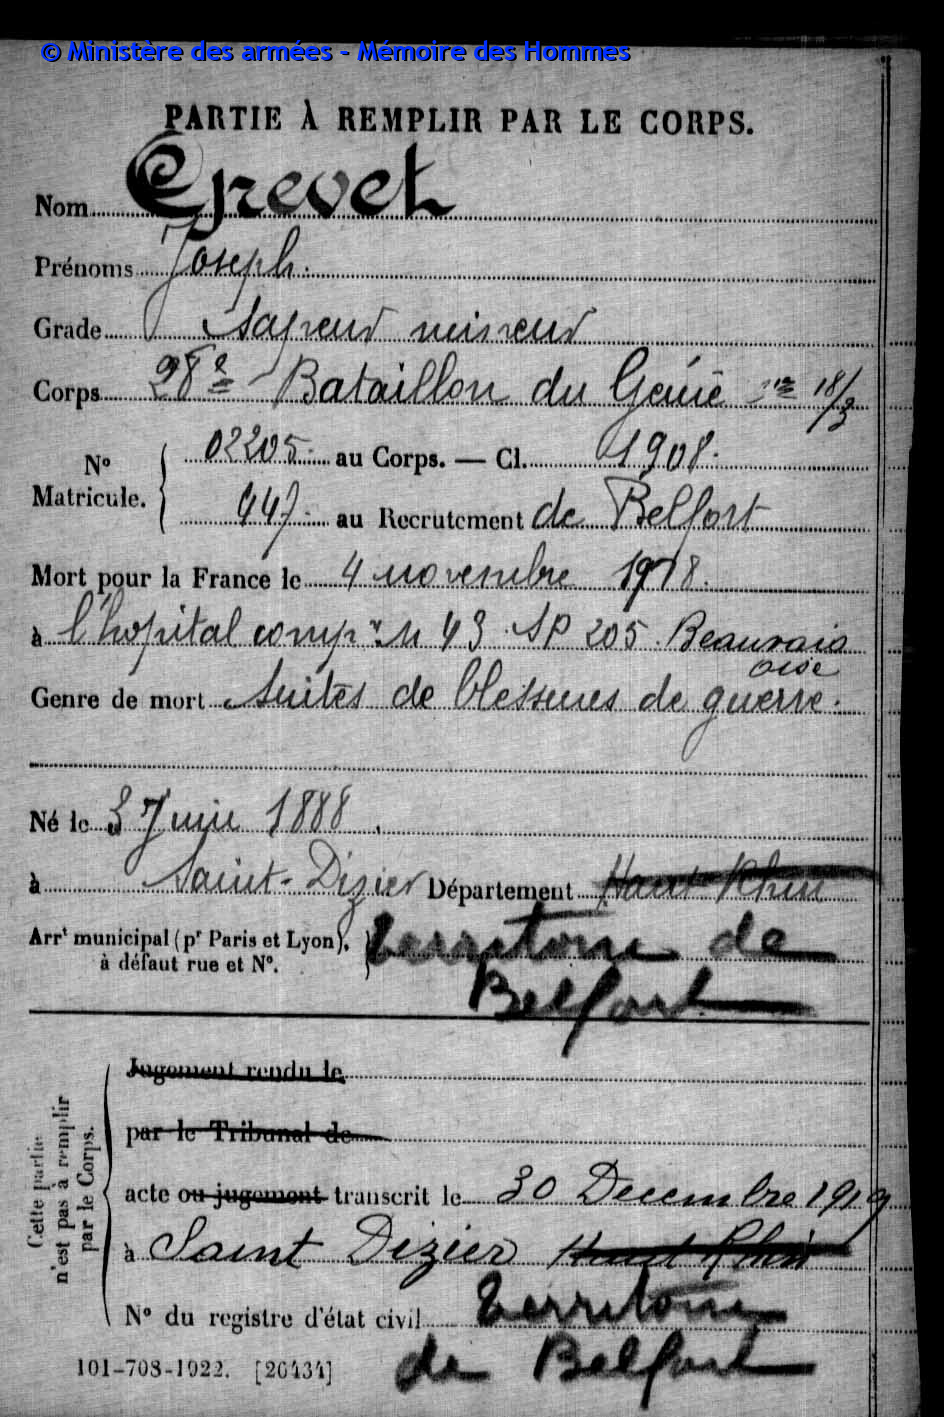 © Ministère des armées - Mémoire des Hommes
PARTIE À REMPLIR PAR LE CORPS.
Nom Crevet
Prénoms Joseph.
Grade Sapeur mineur
Corps 28e Bataillon du Génie 18/3
No Matricule. 02205. au Corps. — Cl. 1908.
447. au Recrutement de Belfort
Mort pour la France le 4 novembre 1918.
à l'hopital comp.re N 43. SP 205. Beauvais
Oise
Genre de mort Suites de blessures de guerre.
Né le 3 Juin 1888.
à Saint-Dizier Département Haut Rhin
Arrt municipal (pr Paris et Lyon), Territoire de
à défaut rue et No. Belfort
Cette partie n'est pas à remplir par le Corps.
Jugement rendu le
par le Tribunal de
acte ou jugement transcrit le 30 Décembre 1919
à Saint Dizier Haut Rhin
No du registre d'état civil Territoire
de Belfort
101-708-1922. [26434]